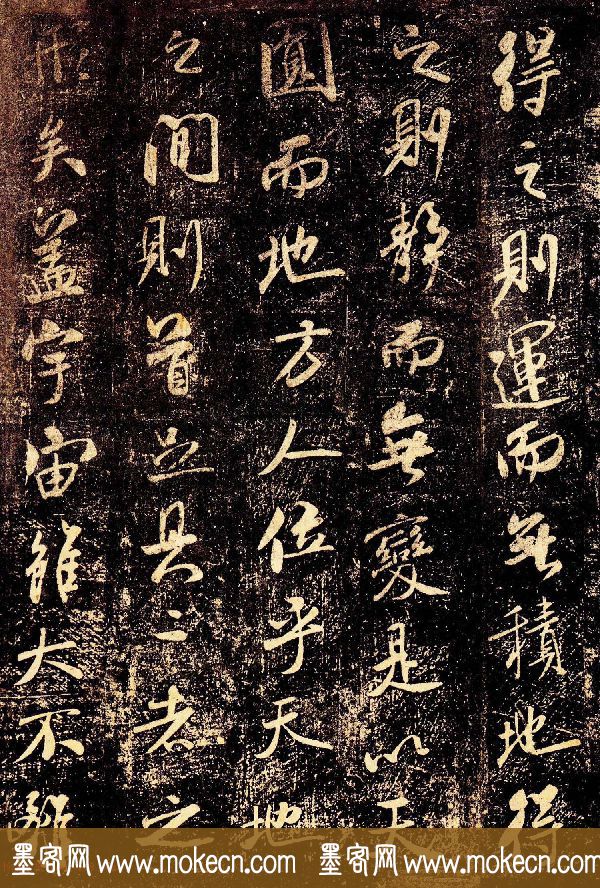 得之則運而無積地得
之則靜而無變是以天
圓而地方人位乎天地
之間則首足具二者之
形矣蓋宇宙雖大不離
墨客网 www.mokecn.com 墨客网 www.mokecn.com